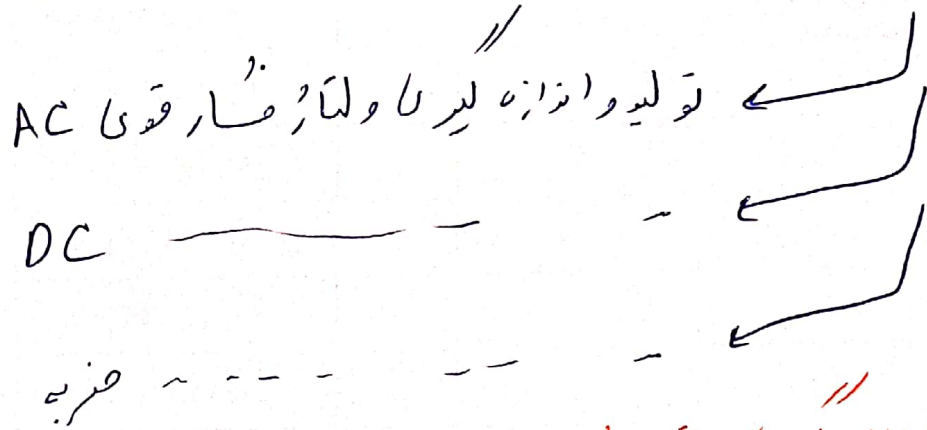 تولید و اندازه گیری ولتاژ فشار قوی AC
DC
ضربه